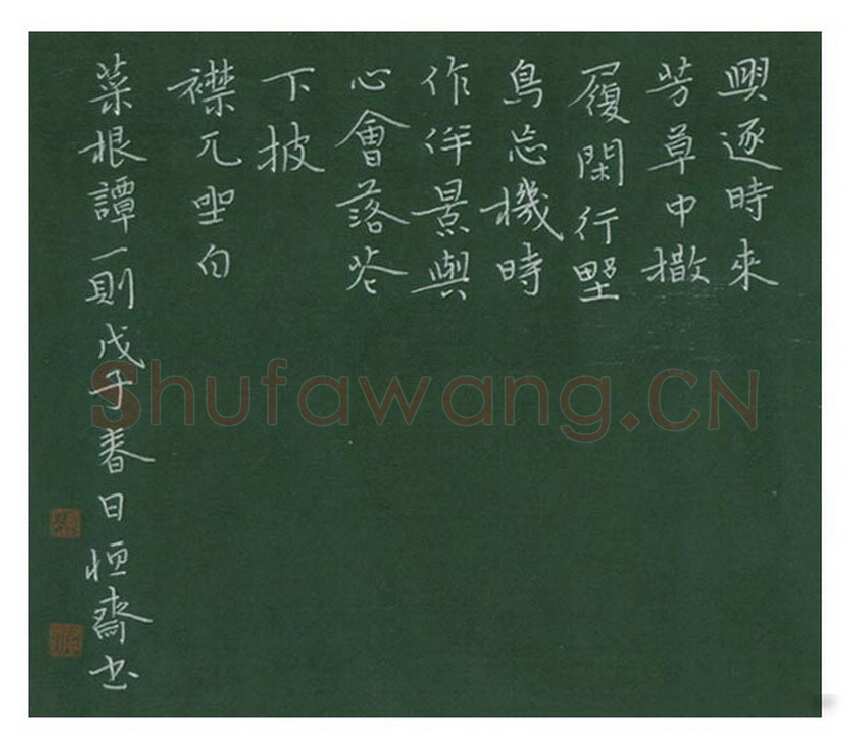 興逐時來
芳草中撒
履閑行野
鳥忘機時
作伴景與
心會落花
下披
襟兀坐白
菜根譚一則戊子春日恒齋书
Shufawang.CN